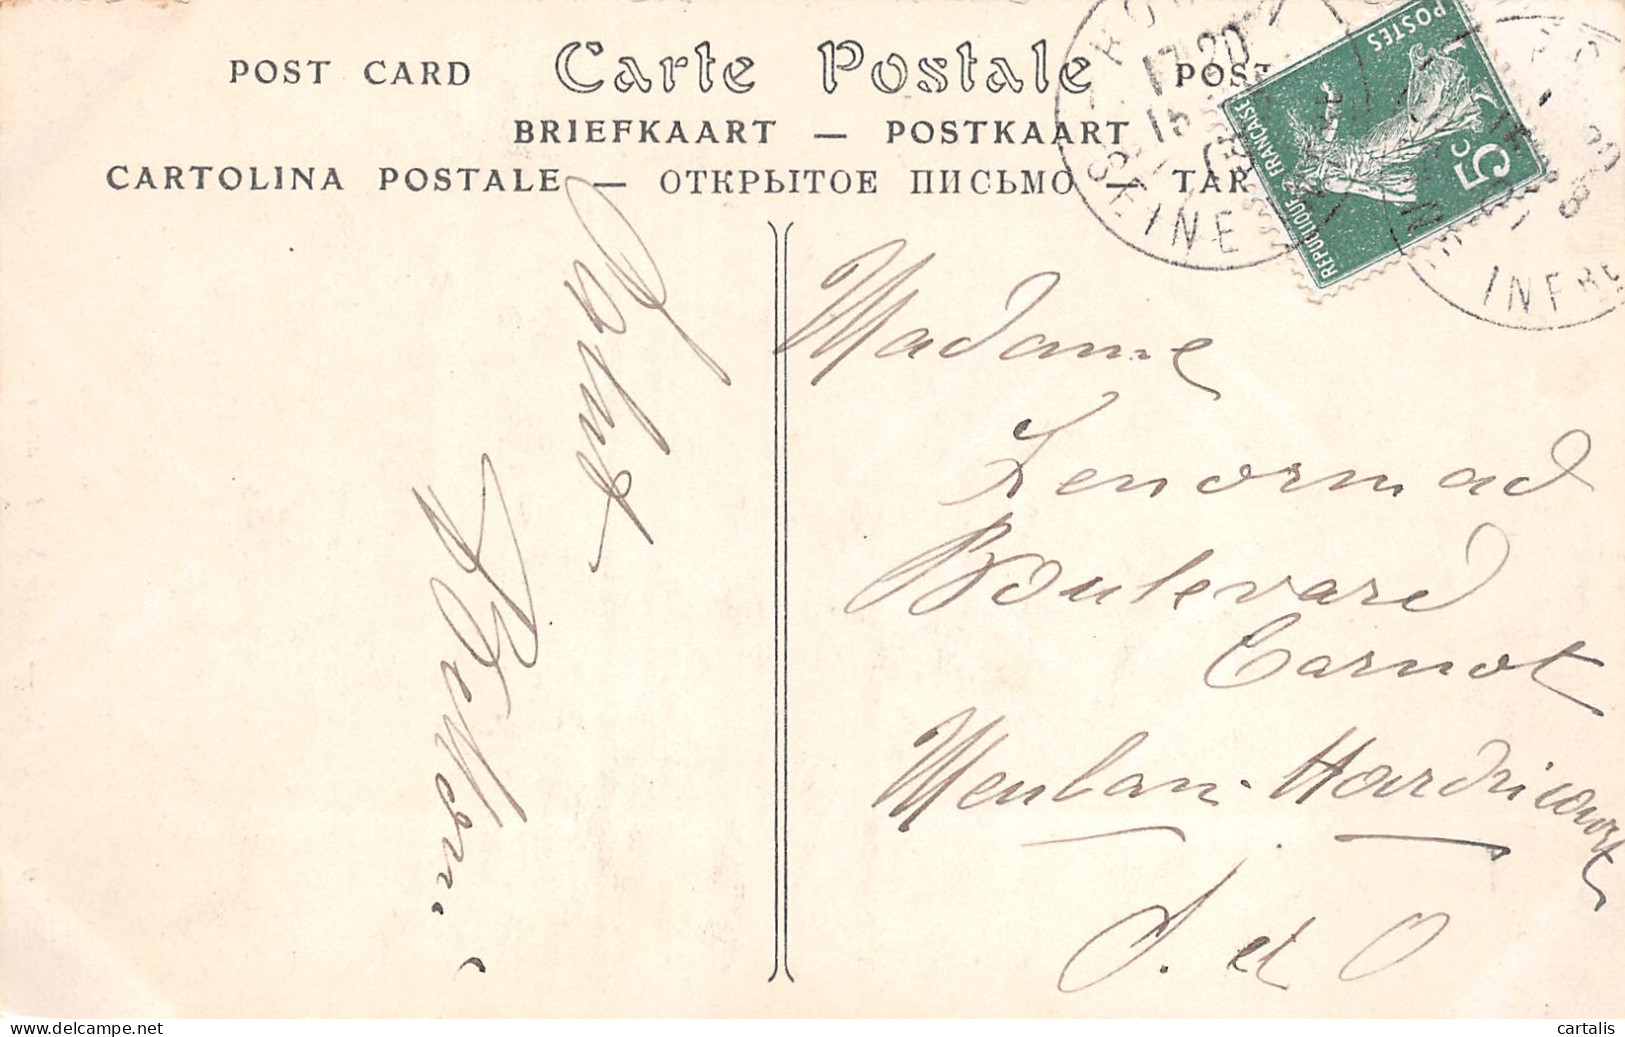 POST CARD Carte Postale POS
BRIEFKAART — POSTKAART
CARTOLINA POSTALE — ОТКРЫТОЕ ПИСЬМО — TAR
17 20
SEINE
POSTES
5c
REPUBLIQUE FRANÇAISE
INFRE
Salut
Madame
Lenormad
Boulevard
Carnot
Meulan-Hardricourt
S. et O
www.delcampe.net
cartalis